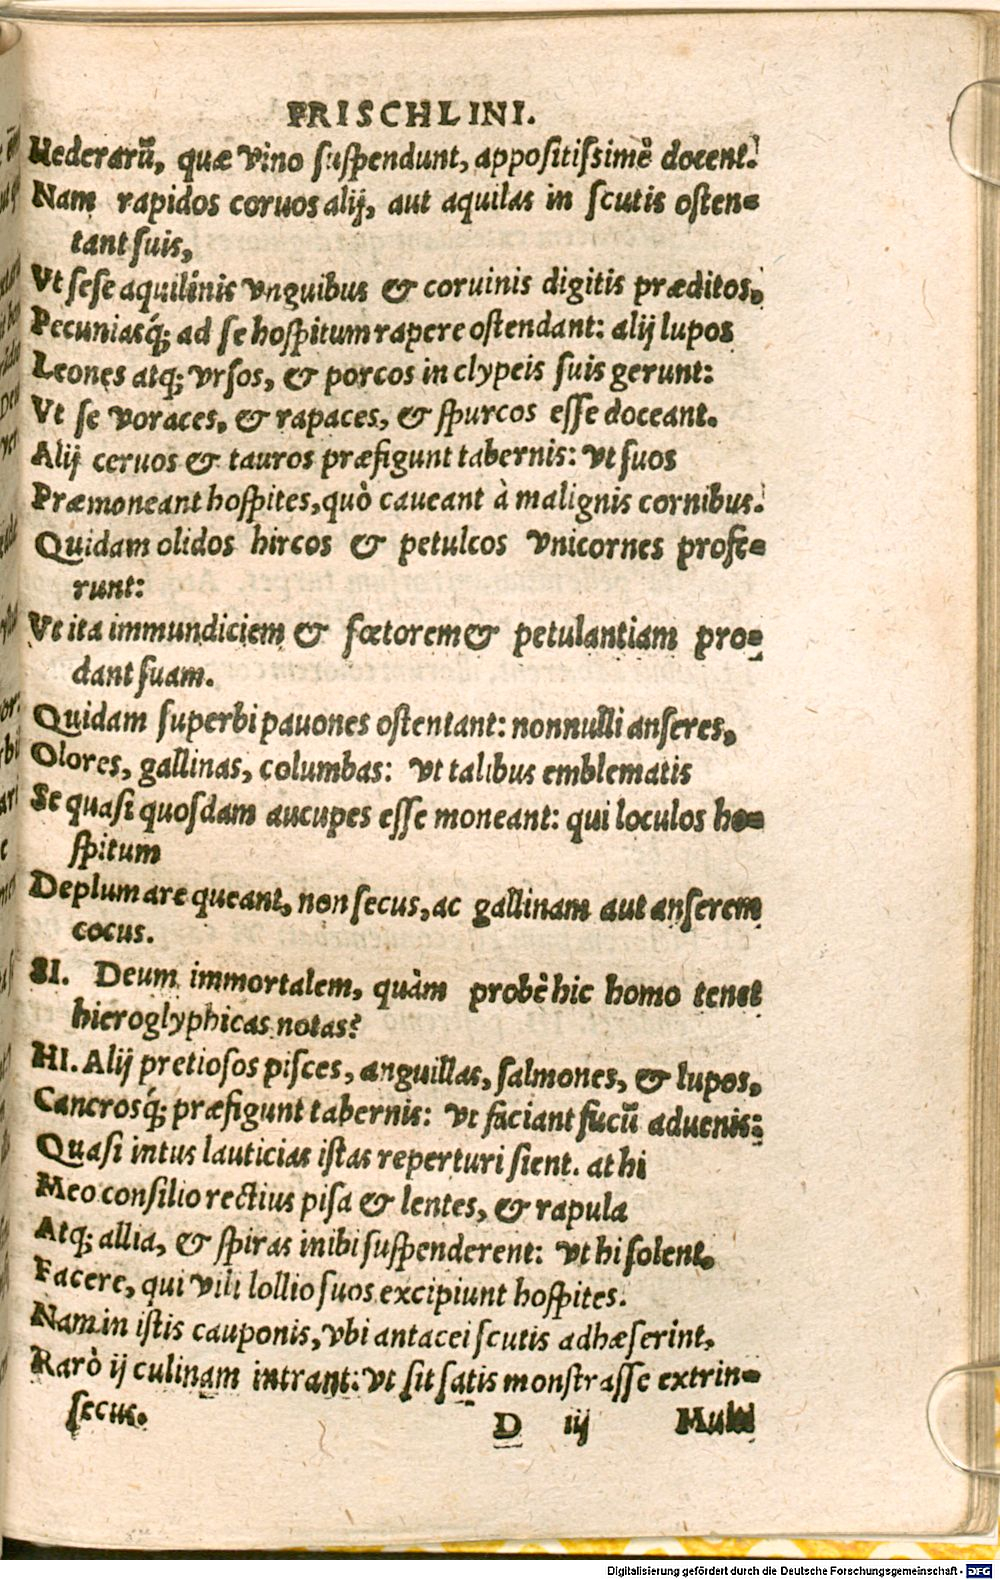 PRISCHLINI.
Hederarū, quæ vino suspendunt, appositissimè docent.
Nam rapidos coruos alij, aut aquilas in scutis osten=
tant suis,
Vt sese aquilinis vnguibus & coruinis digitis præditos,
Pecuniasq́; ad se hospitum rapere ostendant: alij lupos
Leones atq; vrsos, & porcos in clypeis suis gerunt:
Vt se voraces, & rapaces, & spurcos esse doceant.
Alij ceruos & tauros præfigunt tabernis: vt suos
Præmoneant hospites, quò caueant à malignis cornibus.
Quidam olidos hircos & petulcos vnicornes profe=
runt:
Vt ita immundiciem & fœtorem & petulantiam pro=
dant suam.
Quidam superbi pauones ostentant: nonnulli anseres,
Olores, gallinas, columbas: vt talibus emblematis
Se quasi quosdam aucupes esse moneant: qui loculos ho=
spitum
Deplumare queant, non secus, ac gallinam aut anserem
cocus.
SI. Deum immortalem, quàm probè hic homo tenet
hieroglyphicas notas?
HI. Alij pretiosos pisces, anguillas, salmones, & lupos,
Cancrosq́; præfigunt tabernis: vt faciant fucū aduenis:
Quasi intus lauticias istas reperturi sient. at hi
Meo consilio rectius pisa & lentes, & rapula
Atq; allia, & spiras inibi suspenderent: vt hi solent,
Facere, qui vili lollio suos excipiunt hospites.
Nam in istis cauponis, vbi antacei scutis adhæserint,
Rarò ij culinam intrant: vt sit satis monstrasse extrin=
secus.
D iij
Digitalisierung gefördert durch die Deutsche Forschungsgemeinschaft - DFG